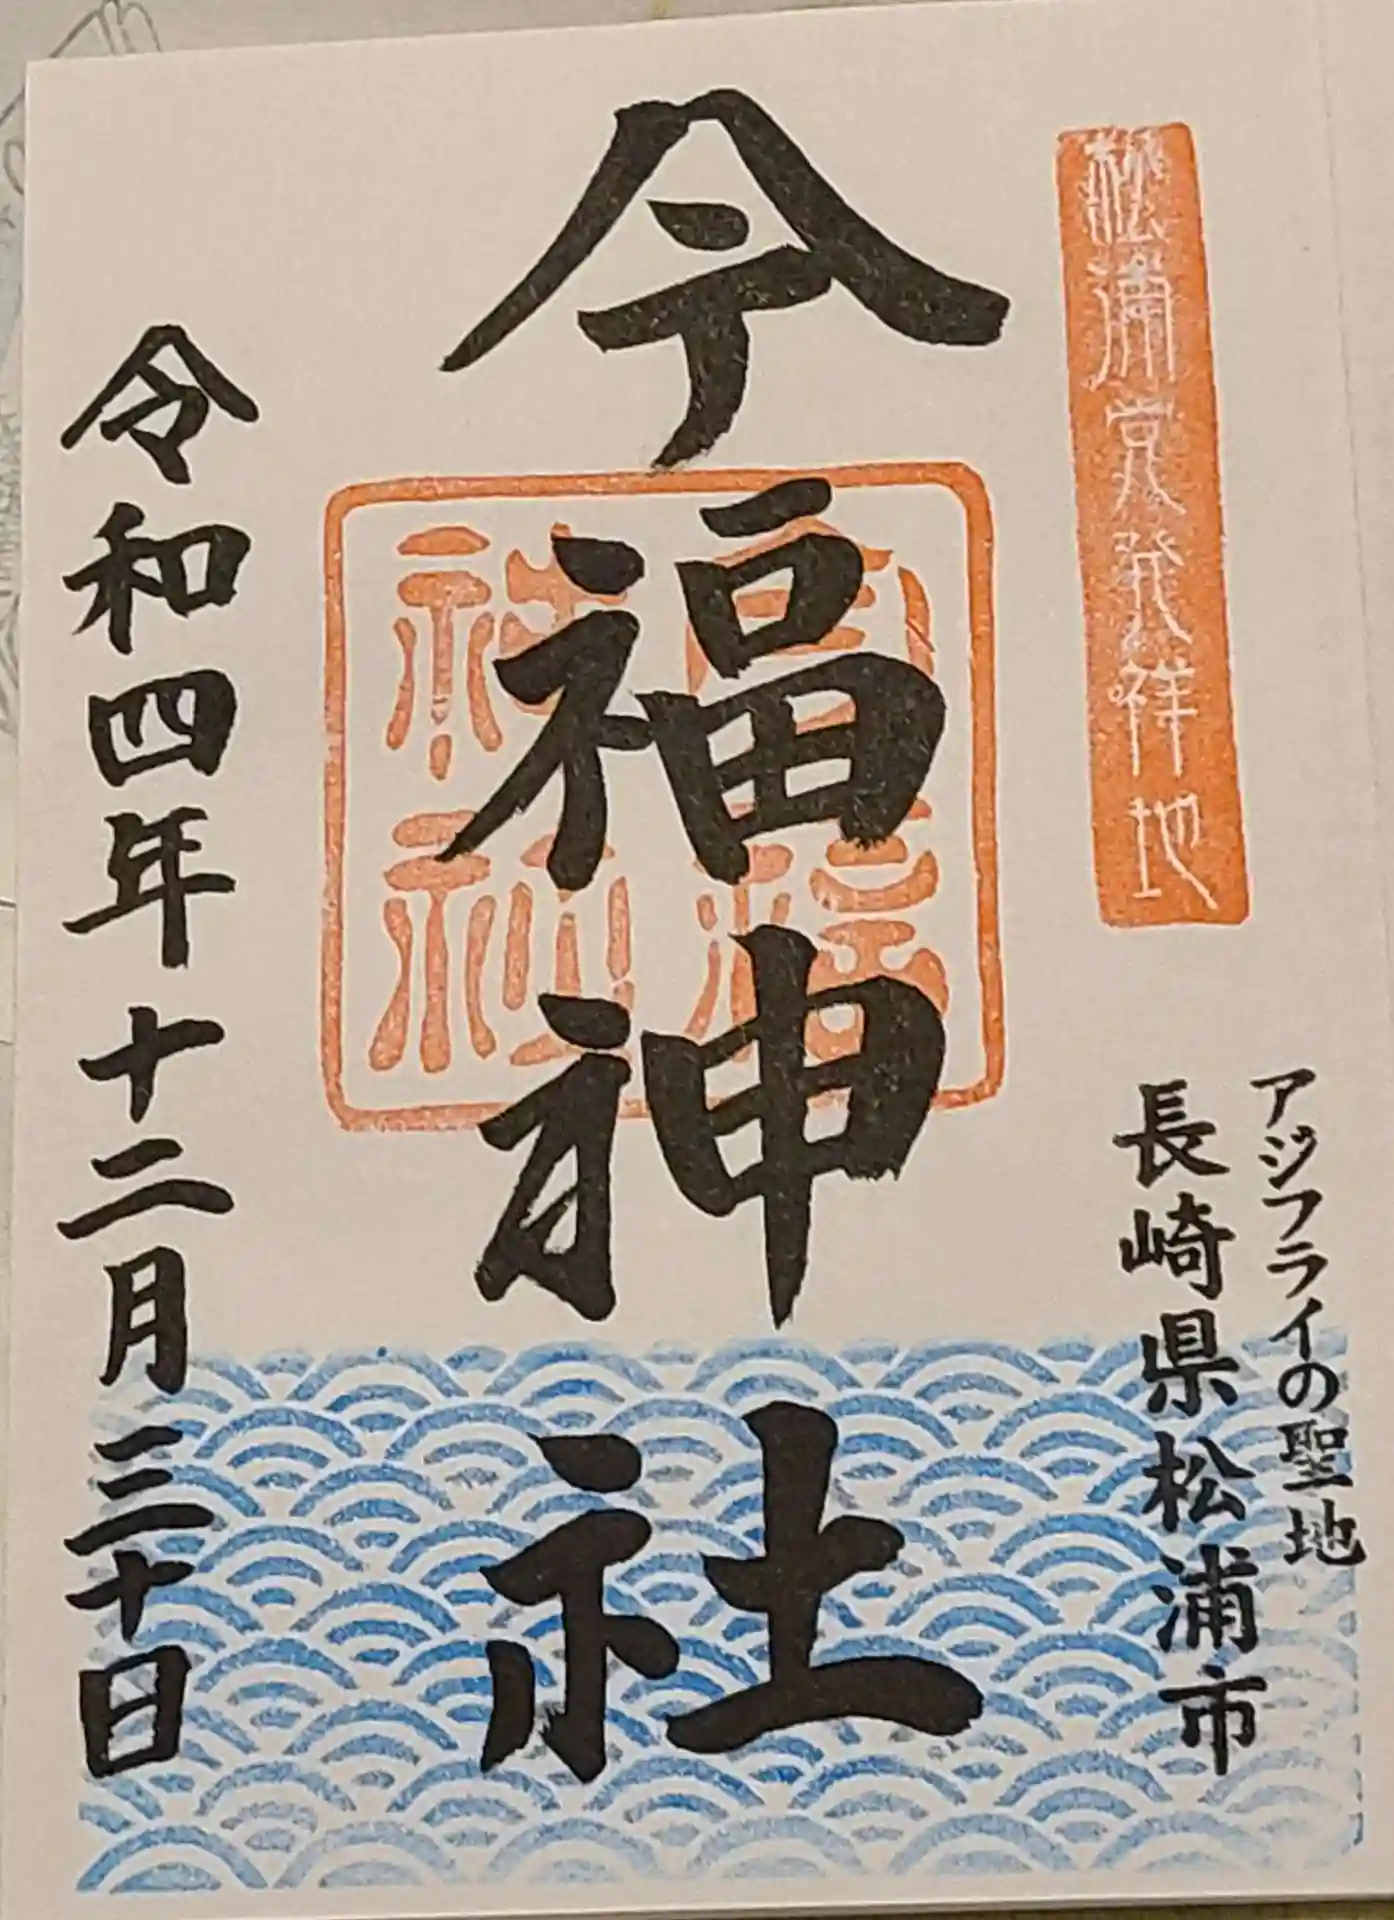 松浦党発祥地
アジフライの聖地
長崎県松浦市
今福神社
今福
神社
令和四年十二月三十日